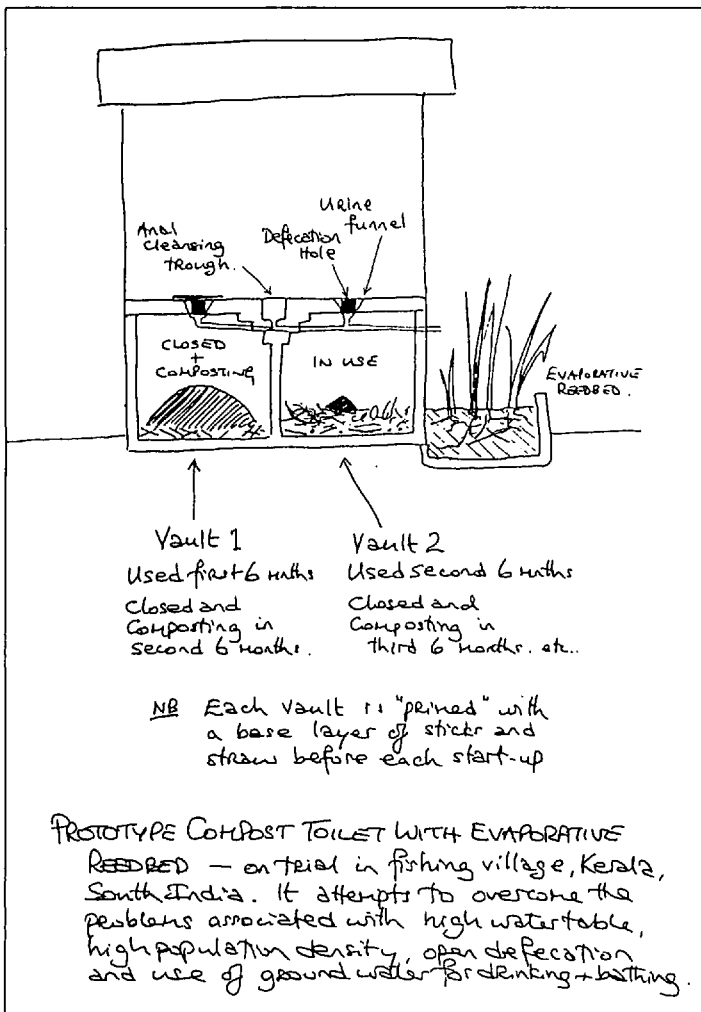 Anal
Cleansing
Trough.
Defecation
Hole
Urine
funnel
CLOSED
+
COMPOSTING
IN USE
EVAPORATIVE
REEDBED.
Vault 1
Used first 6 months
Closed and
Composting in
second 6 months.
Vault 2
Used second 6 months
Closed and
Composting in
third 6 months. etc..
NB Each vault is "primed" with
a base layer of sticks and
straw before each start-up
PROTOTYPE COMPOST TOILET WITH EVAPORATIVE
REEDBED — on trial in fishing village, Kerala,
South India. It attempts to overcome the
problems associated with high water table,
high population density, open defecation
and use of ground water for drinking + bathing.